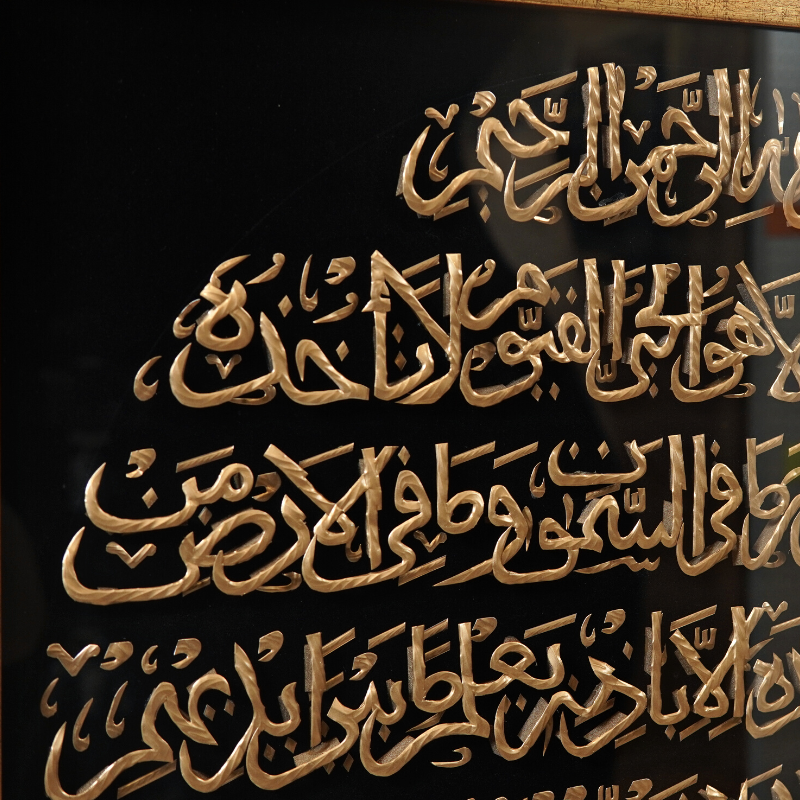 الرَّحْمٰنِ الرَّحِيْمِ
هُوَ الْحَيُّ الْقَيُّومُ لَا تَأْخُذُهُ
مَا فِي السَّمٰوٰتِ وَمَا فِي الْأَرْضِ مَنْ
إِلَّا بِإِذْنِهِ يَعْلَمُ مَا بَيْنَ أَيْدِيْهِمْ